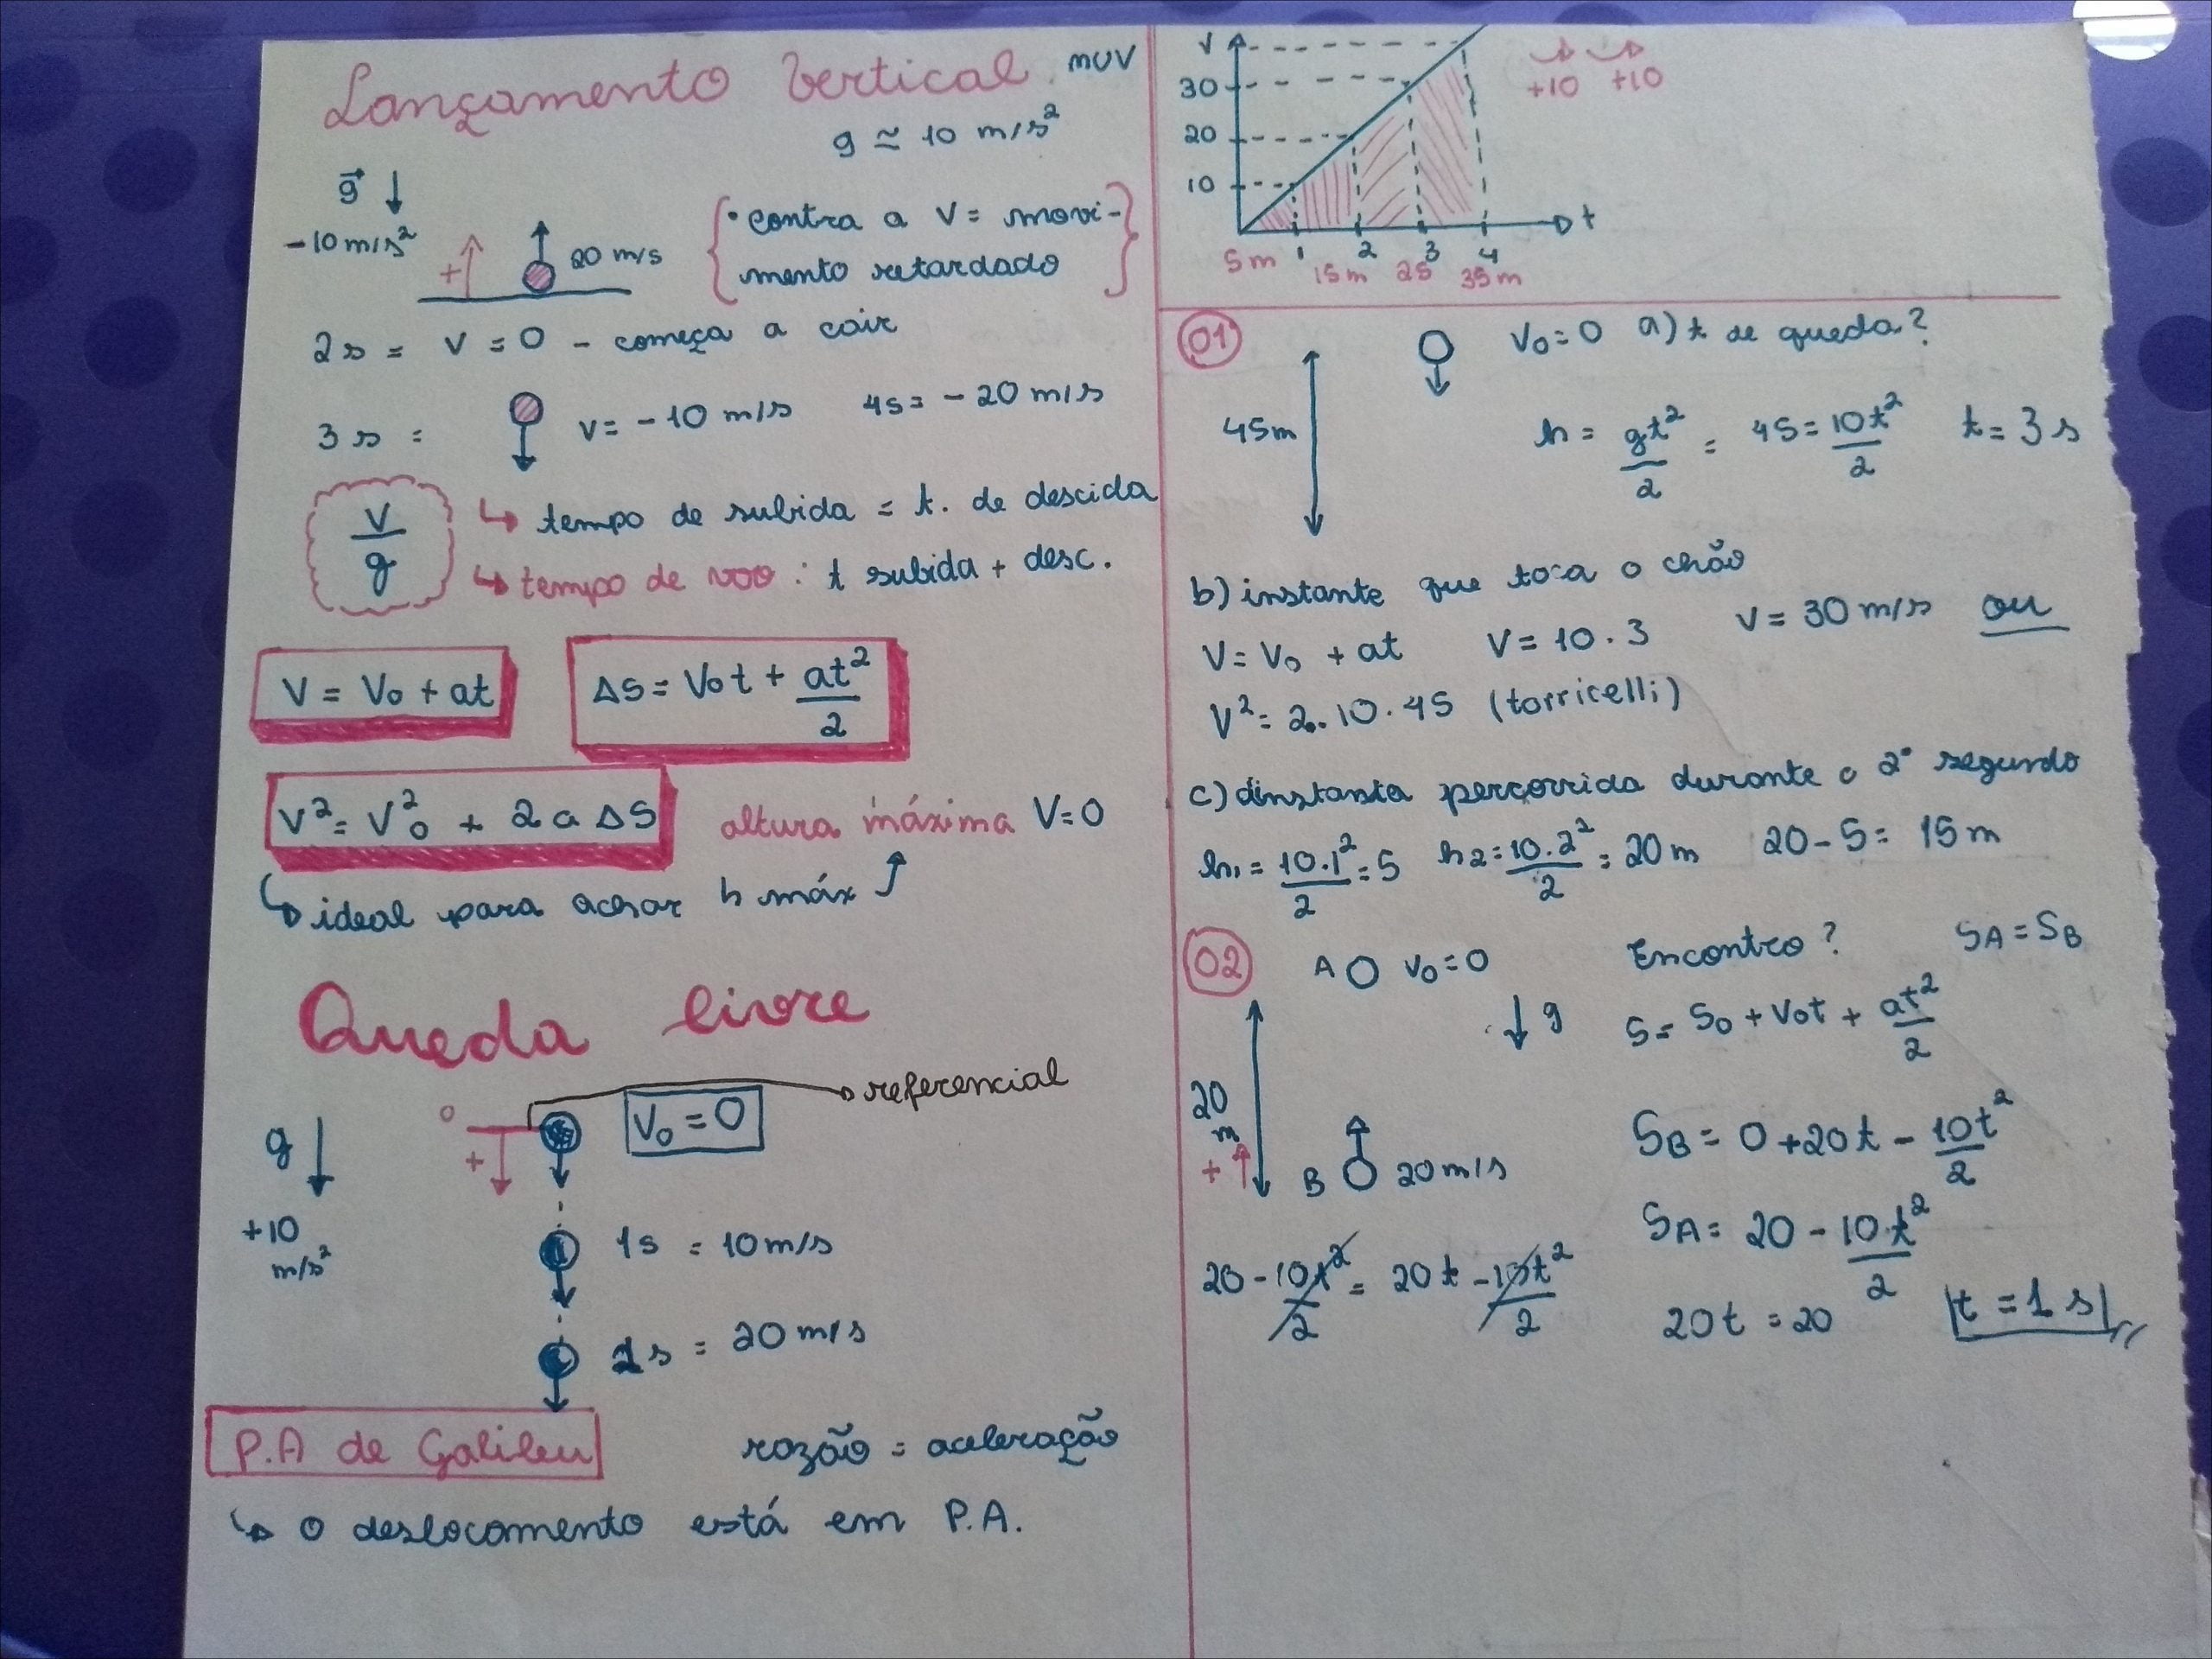 Lançamento Vertical MUV
g ≃ 10 m/s²
g⃗ ↓
-10 m/s²
+ 20 m/s
• contra a V = movi-
mento retardado
2s = V = 0 - começa a cair
3s = v = -10 m/s 4s = -20 m/s
V/g
↳ tempo de subida = t. de descida
↳ tempo de voo : t subida + desc.
V = V₀ + at
ΔS = V₀t + at²/2
V² = V₀² + 2aΔS
altura máxima V=0
↳ ideal para achar h máx ↑
Queda livre
referencial
0 V₀ = 0
g ↓ +
+10
m/s²
1s = 10 m/s
2s = 20 m/s
P.A de Galileu
razão = aceleração
↳ o deslocamento está em P.A.
V
30
20
10
t
1 2 3 4
5m 15m 25 35m
+10 +10
01
V₀=0 a) t de queda?
45m
h = gt²/2 = 45 = 10t²/2 t = 3s
b) instante que toca o chão
V = V₀ + at V = 10 . 3 V = 30 m/s ou
V² = 2.10.45 (torricelli)
c) dinstanta percorrida durante o 2° segundo
h₁ = 10.1²/2 = 5 h₂ = 10.2²/2 = 20m 20 - 5 = 15m
02
A V₀=0 Encontro? SA = SB
↓ g S = S₀ + V₀t + at²/2
20
m
+
B 20 m/s
SB = 0 + 20t - 10t²/2
SA = 20 - 10t²/2
20 - 10t²/2 = 20t - 10t²/2
20t = 20 t = 1 s